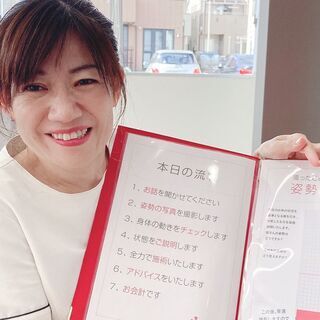 本日の流れ
1、お話を聞かせてください
2、姿勢の写真を撮影します
3、身体の動きをチェックします
4、状態をご説明します
5、全力で施術いたします
6、アドバイスをいたします
7、お会計です
姿勢